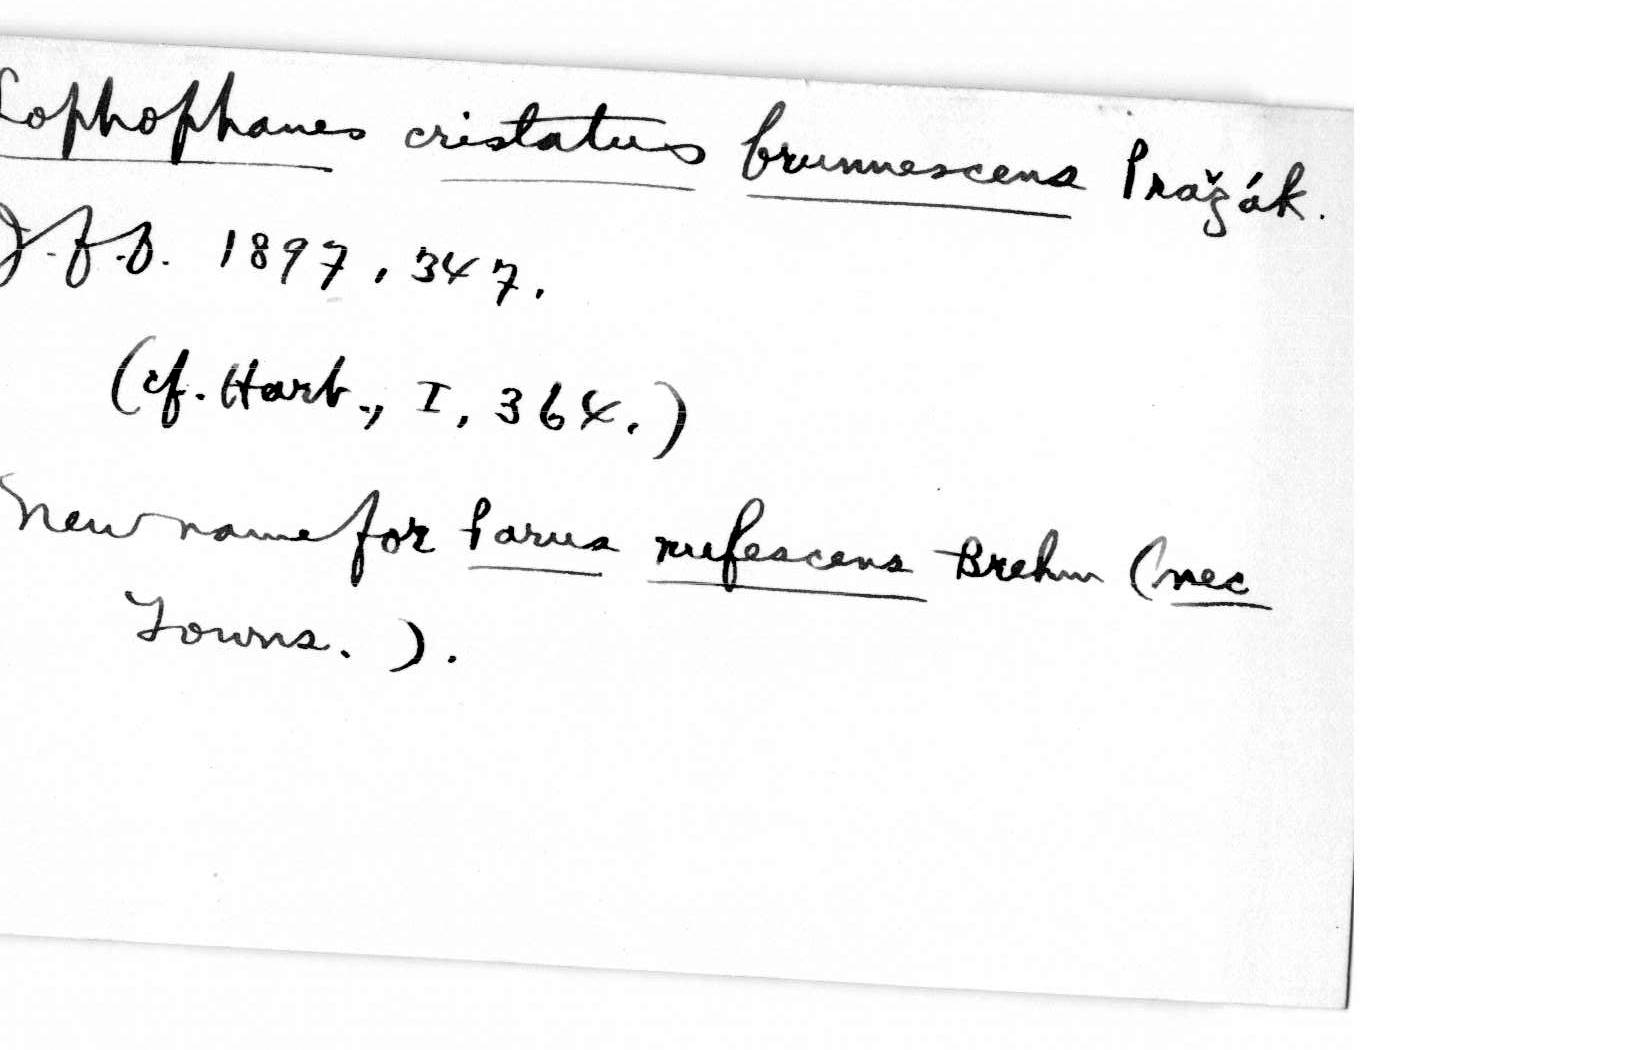 Lophophanes cristatus brunnescens Pražák.
J.f.O. 1897, 347.
(cf. Hart., I, 364.)
New name for Parus rufescens Brehm (nec
Towns.).